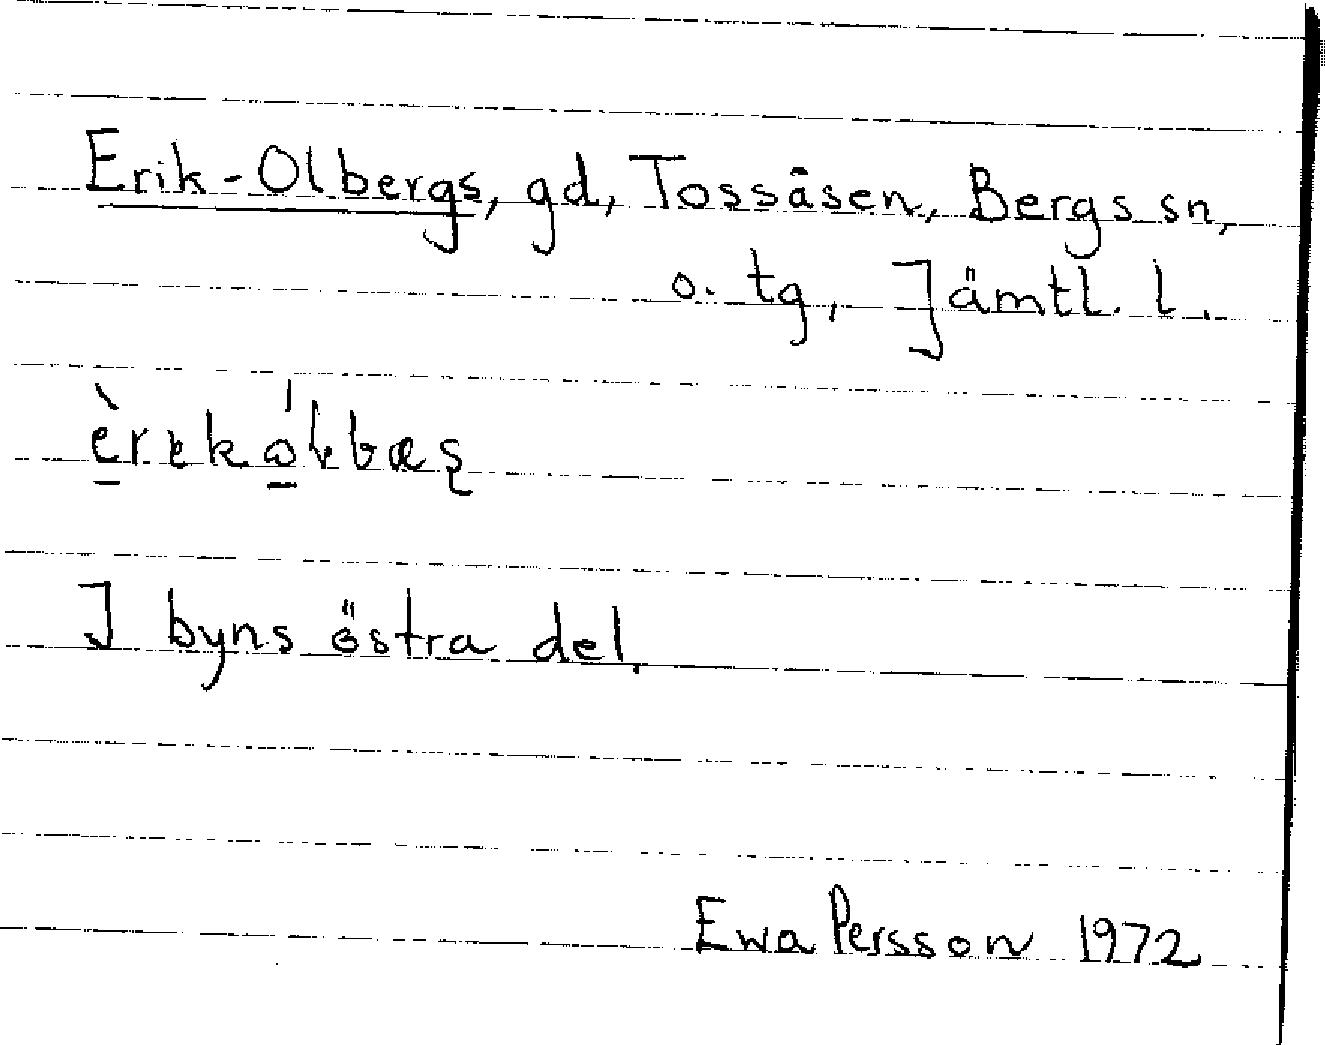 Erik-Olbergs, gd, Tossåsen, Bergs sn,
o. tg, Jämtl. l.
I byns östra del.
Ewa Persson 1972